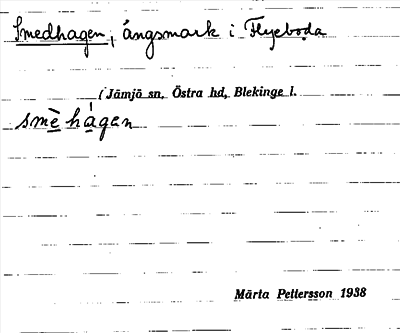 Smedhagen, ängsmark i Flyeboda
(Jämjö sn, Östra hd, Blekinge l.
smè̱ há̱gen
Märta Pettersson 1938